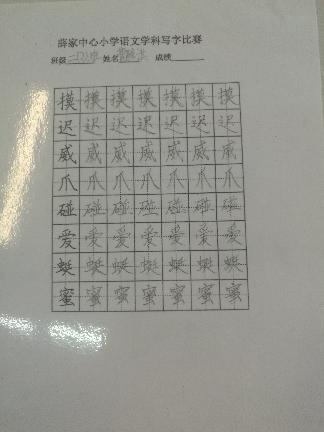 薛家中心小学语文学科写字比赛
班级 姓名 成绩
摸 摸 摸 摸 摸 摸 摸
迟 迟 迟 迟 迟 迟 迟
威 威 威 威 威 威 威
爪 爪 爪 爪 爪 爪 爪
碰 碰 碰 碰 碰 碰 碰
爱 爱 爱 爱 爱 爱 爱
蜓 蜓 蜓 蜓 蜓 蜓 蜓
蜜 蜜 蜜 蜜 蜜 蜜 蜜